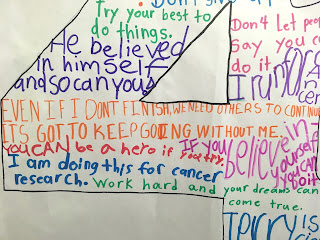 Try your best to
do things.
He believed
in himself
and so can you
Don't let peop
say you c
do it
I run fo
EVEN IF I DONT FINISH, WE NEED OTHERS TO CONTINUE
IT'S GOT TO KEEP GOING WITHOUT ME.
YOU CAN be a hero if you try.
I am doing this for cancer
research.
IF YOU
believe in
yourself
you can
do it
Work hard and your dreams can
come true.
Terry is